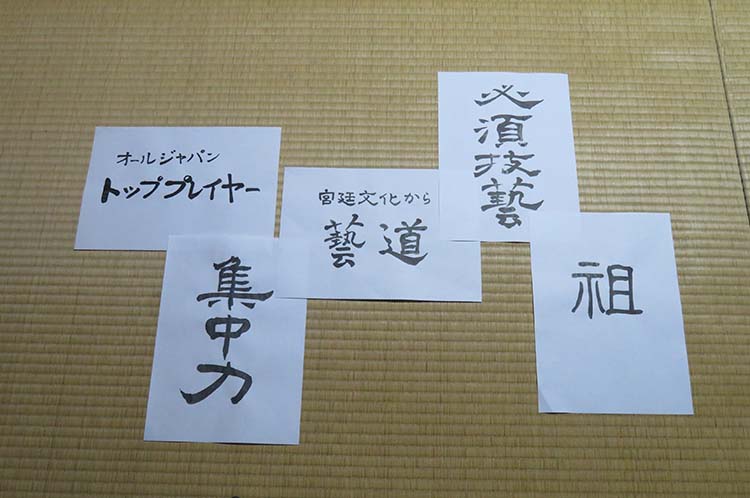 オールジャパン
トッププレイヤー
集中力
宮廷文化から
藝道
必須技藝
祖